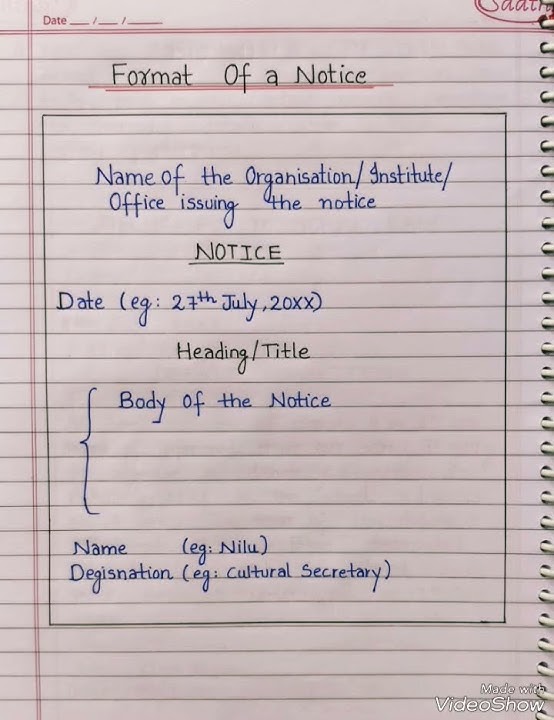 Saathi
Date ___ / ___ / ______
Format Of a Notice
Name of the Organisation/Institute/
Office issuing the notice
NOTICE
Date (eg: 27th July, 20XX)
Heading/Title
Body of the Notice
Name (eg: Nilu)
Degisnation (eg: Cultural Secretary)
Made with
VideoShow